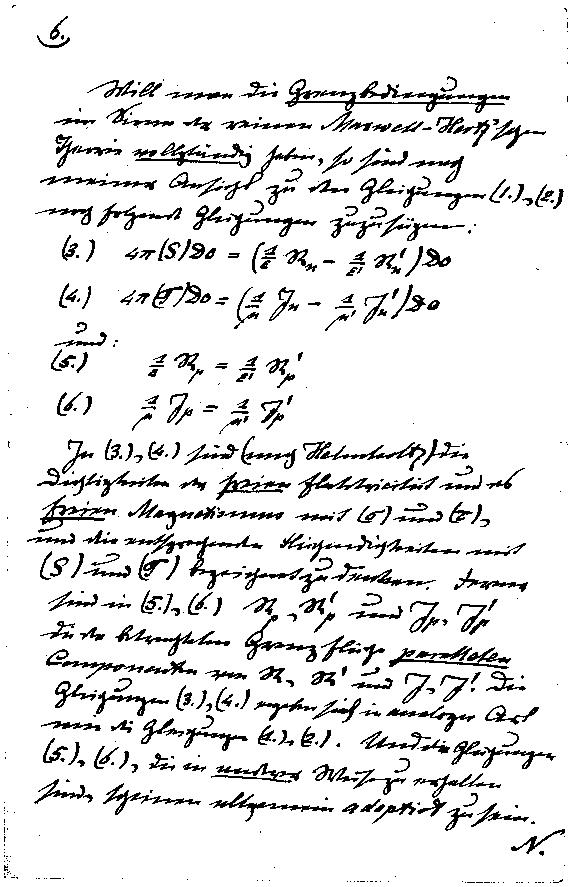 6.
Will man die Grenzbedingungen
im Sinne der reinen Maxwell-Hertz'schen
Theorie vollständig haben, so sind nach
meiner Ansicht zu den Gleichungen (1.), (2.)
noch folgende Gleichungen zuzufügen:
(3.) 4π(S)Do = (1/ε ℜn − 1/ε' ℜ'n) Do
(4.) 4π(T)Do = (1/μ Jn − 1/μ' J'n) Do
und:
(5.) 1/ε ℜp = 1/ε' ℜ'p
(6.) 1/μ Jp = 1/μ' J'p
In (3.), (4.) sind (nach Helmholtz) die
Dichtigkeiten der freien Elektricität und des
freien Magnetismus mit (σ) und (τ),
und die entsprechenden mit
(S) und (T) bezeichnet zu denken. Ferner
sind in (5.), (6.) ℜp, ℜ'p und Jp, J'p
die der betrachteten Grenzfläche parallelen
Componenten von ℜ, ℜ' und J, J'. Die
Gleichungen (3.), (4.) ergeben sich in analoger Art
wie die Gleichungen (1.), (2.). Und die Gleichungen
(5.), (6.), die in andrer Weise zu erhalten
sind, scheinen allgemein adoptirt zu sein.
N.